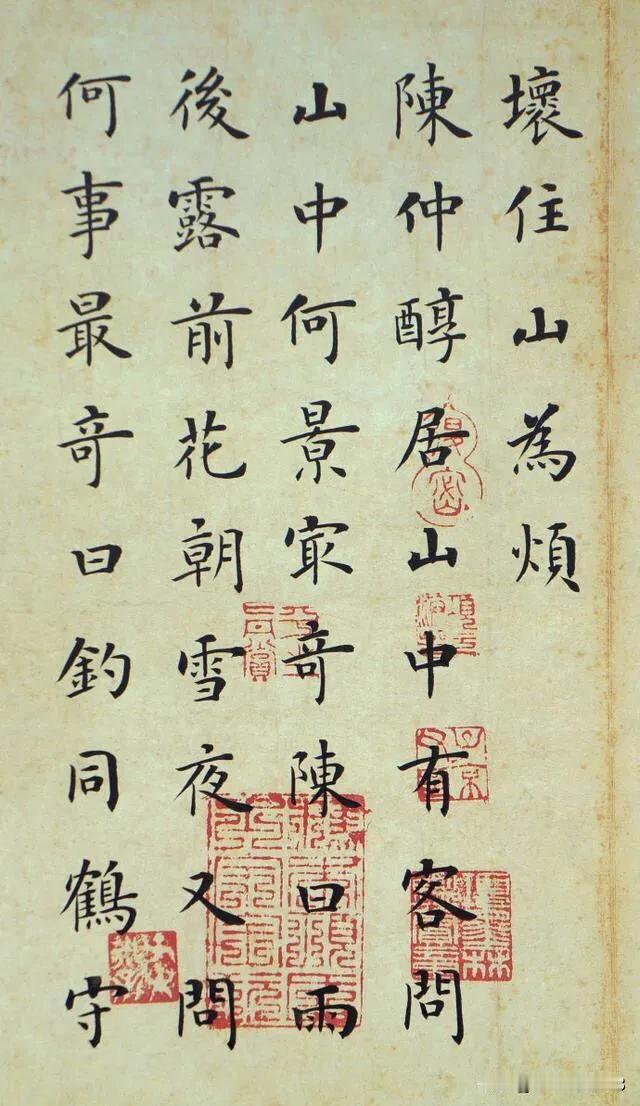 壞住山為煩
陳仲醇居山中有客問
山中何景㝡竒陳曰雨
後露前花朝雪夜又問
何事最竒曰釣同鶴守